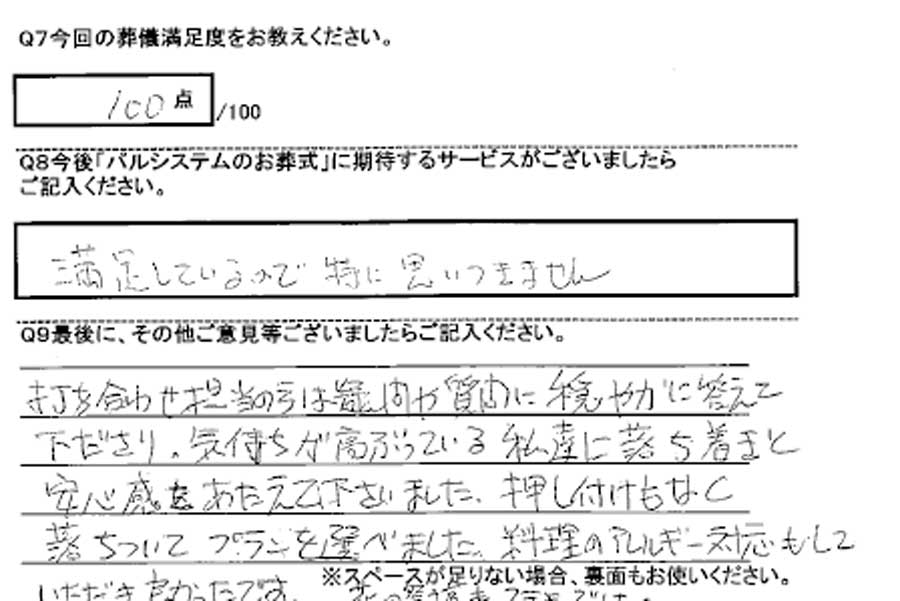 Q7今回の葬儀満足度をお教えください。
100点/100
Q8今後「パルシステムのお葬式」に期待するサービスがございましたら
ご記入ください。
満足しているので特に思いつきません
Q9最後に、その他ご意見等ございましたらご記入ください。
打ち合わせ担当の方は疑問や質問に穏やかに答えて
下ださり、気持ちが高ぶっている私達に落ち着きと
安心感をあたえて下さいました、押し付けもなく
落ちついてプランを選べました。料理のアレルギー対応もして
いただき良かったです。
※スペースが足りない場合、裏面もお使いください。